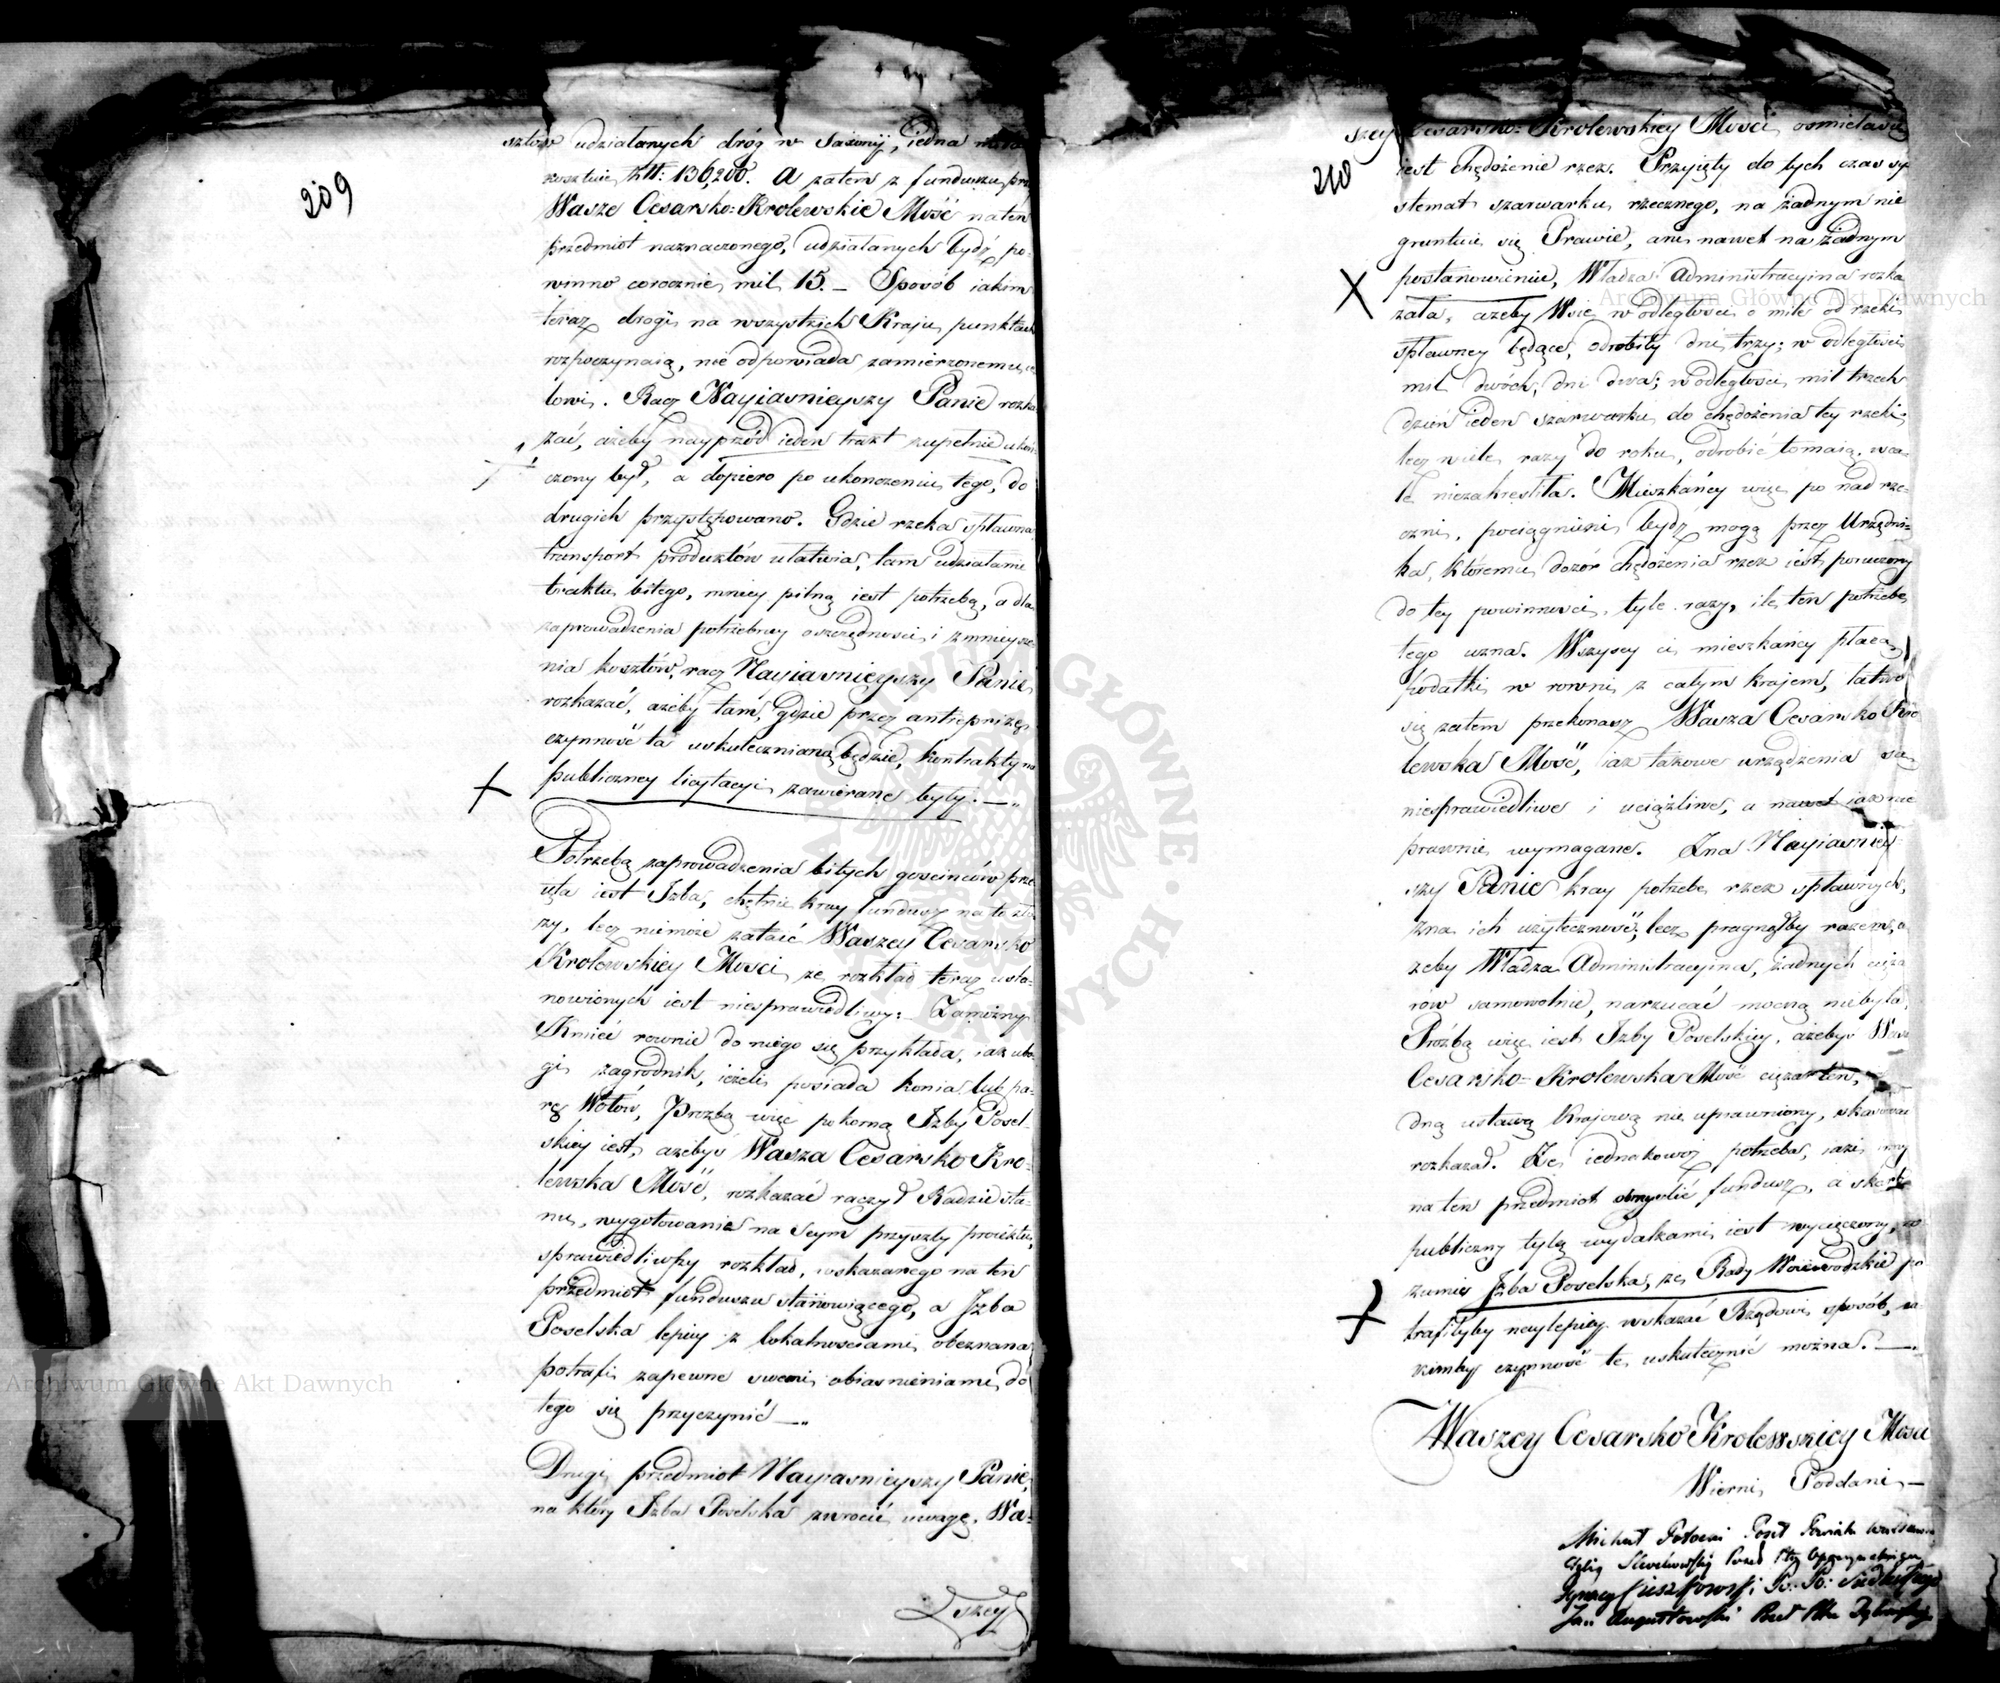 209
sztów udziałanych dróg w Saxonij, iedna mila
kosztuie Złł: 136,200. A zatem z funduszu, prz
Wasze Cesarsko=Krolewskie Mość na ten
przedmiot naznaczonego, udziałanych bydź po-
winno corocznie mil 15. — Sposób iakim
teraz drogi na wszystkich Kraju punktach
rozpoczynaią, nie odpowiada zamierzonemu ce
lowi. Racz Nayiasnieyszy Panie rozka
zać, ażeby nayprzód ieden trakt zupełnie ukoń
czony był, a dopiero po ukonczeniu tego, do
drugich przystępowano. Gdzie rzeka spławna
transport produktów ułatwia, tam udziałanie
traktu bitego, mniey pilną iest potrzebą, a dla
zaprowadzenia potrzebney oszczędnosci i zmnieysze
nia kosztów, racz Nayiasnieyszy Panie
rozkazać, ażeby tam, gdzie przez antreprizę
czynność ta uskutecznianą będzie, kontrakty na
publiczney licytacyi zawierane były. —
Potrzebą zaprowadzenia bitych goscinców prze
ięta iest Izba, chętnie kray fundusz na to zło
ży, lecz niemoże zataić Waszey Cesarsko
Krolewskiey Mosci, że rozkład teraz usta-
nowionych iest niesprawiedliwy: Zamożny
Kmieć rownie do niego się przykłada, iak ubo-
gi zagrodnik, ieżeli posiada konia lub pa-
rę Wołów, Prozbą więc pokorną Izby Posel-
skiey iest, ażebyś Wasza Cesarsko Kro-
lewska Mość, rozkazać raczył Radzie sta-
nu, wygotowanie na Seym przyszły proiektu,
sprawiedliwszy rozkład, wskazanego na ten
przedmiot funduszu stanowiącego, a Izba
Poselska lepiey z lokalnosciami obeznana
potrafi zapewne swemi obiasnieniami do
tego się przyczynić —
Drugi przedmiot Nayiasnieyszy Panie,
na który Izba Poselska zwrocić uwagę, Wa-
szey
210
szey Cesarsko=Krolewskiey Mosci osmiela się
iest chędożenie rzek. Przyięty do tych czas sy
stemat szarwarku rzecznego, na żadnym nie
gruntuie się Prawie, ani nawet na żadnym
postanowieniu, Władza Administracyina rozka
zała, ażeby Wsie w odległosci o milę od rzeki
spławney będące, odrobiły dni trzy; w odległosci
mil dwóch, dni dwa; w odległosci mil trzech
dzień ieden szarwarku do chędożenia tey rzeki,
lecz wiele razy do roku, odrobić to maią, wca-
le niezakreśliła. Mieszkańcy więc po nad rze-
czni, pociągnieni bydź mogą przez Urzędni-
ka, któremu dozór chędożenia rzek iest poruczony
do tey powinności, tyle razy, ile ten potrzebę
tego uzna. Wszyscy ci mieszkańcy płacą
podatki w rowni z całym krajem, łatwo
się zatem przekonasz Wasza Cesarsko Kro
lewska Mość, iak takowe urządzenia są
niesprawiedliwe i uciążliwe, a nawet iak nie
prawnie wymagane. Zna Nayiasniey
szy Panie kray potrzebę rzek spławnych,
zna ich użyteczność, lecz pragnąłby razem, a
żeby Władza Administracyina, żadnych cięża
rów samowolnie, narzucać mocną nie była,
Prózbą więc iest Izby Poselskiey, ażebyś Wasz
Cesarsko=Krolewska Mość ciężar ten,
dną ustawą Krajową nie uprawniony, skasować
rozkazał. Że iednakowoż potrzeba, iakiś inny
na ten przedmiot obmyślić fundusz, a skarb
publiczny tylą wydatkami iest wycięczony, ro
zumie Izba Poselska, że Rady Woiewodzkie po
trafiłyby naylepiey wskazać Rządowi sposób, ia-
kimby czynność tę uskutecznić można. —
Waszey Cesarsko Krolewskiey Mosci
Wierni Poddani —
Michał Potocki Poseł Powiatu
Ignacy
Jan Augustowski Poseł Ptu
Archiwum Główne Akt Dawnych
Archiwum Główne Akt Dawnych
ARCHIWUM GŁÓWNE AKT DAWNYCH